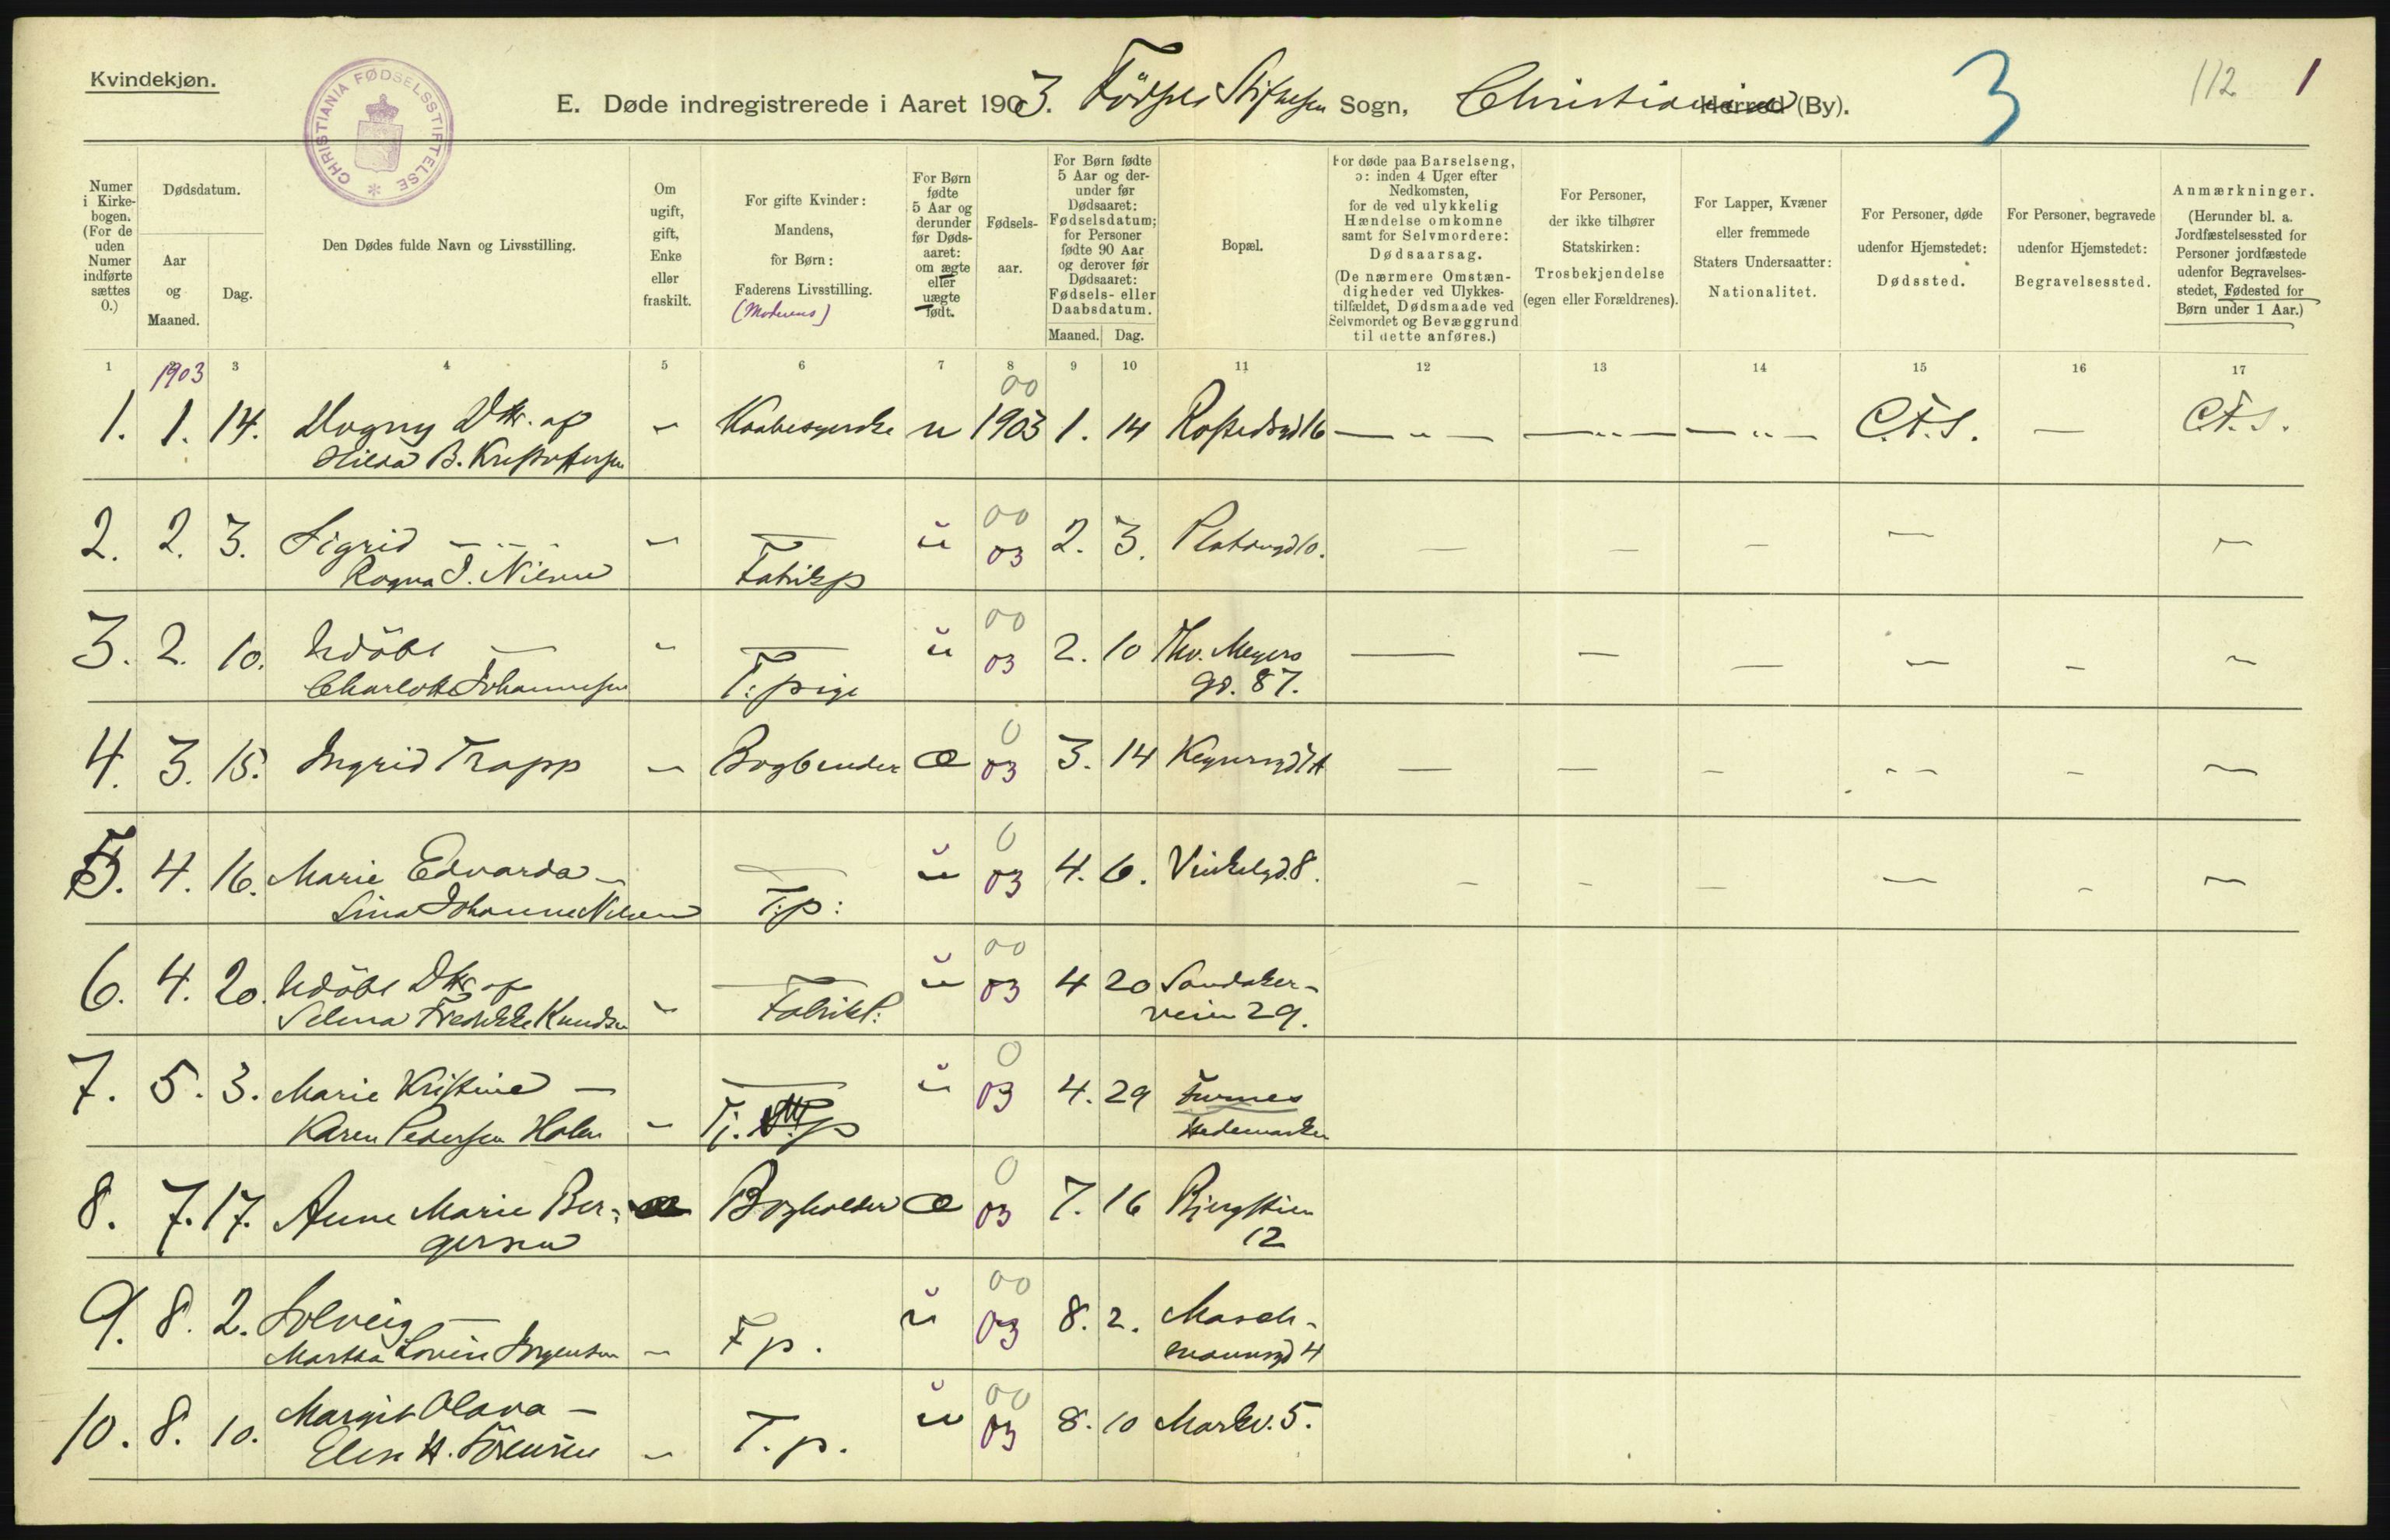 Kvindekjøn.
CHRISTIANIA FØDSELSSTIFTELSE
E. Døde indregistrerede i Aaret 1903. Fødsels Stiftelsen Sogn, Christiania Herred (By).
3
112
1
Numer i Kirkebogen. (For de uden Numer indførte sættes 0.)
Dødsdatum.
Aar og Maaned.
Dag.
Den Dødes fulde Navn og Livsstilling.
Om ugift, gift, Enke eller fraskilt.
For gifte Kvinder: Mandens, for Børn: Faderens Livsstilling.
(Moderens)
For Børn fødte 5 Aar og derunder før Dødsaaret: om ægte eller uægte født.
Fødselsaar.
For Børn fødte 5 Aar og derunder før Dødsaaret: Fødselsdatum; for Personer fødte 90 Aar og derover før Dødsaaret: Fødsels- eller Daabsdatum.
Maaned. Dag.
Bopæl.
For døde paa Barselseng, ɔ: inden 4 Uger efter Nedkomsten, for de ved ulykkelig Hændelse omkomne samt for Selvmordere: Dødsaarsag.
(De nærmere Omstændigheder ved Ulykkestilfældet, Dødsmaade ved Selvmordet og Bevæggrund til dette anføres.)
For Personer, der ikke tilhører Statskirken: Trosbekjendelse (egen eller Forældrenes).
For Lapper, Kvæner eller fremmede Staters Undersaatter: Nationalitet.
For Personer, døde udenfor Hjemstedet: Dødssted.
For Personer, begravede udenfor Hjemstedet: Begravelsessted.
Anmærkninger. (Herunder bl. a. Jordfæstelsessted for Personer jordfæstede udenfor Begravelsesstedet, Fødested for Børn under 1 Aar.)
1 2 3 4 5 6 7 8 9 10 11 12 13 14 15 16 17
1903 00
1. 1. 14. Dagny Dtr. af - Kaabesyerske u 1903 1. 14 Rostedsgd 16 — „ — — „ — — „ — C.F.S. — C.F.S.
Hilda B. Kristoffersen
00
2. 2. 3. Sigrid — „ — - — u 03 2. 3. Platousgd 10. — — — — —
Ragna J. Nilsen Fabrikp
00
3. 2. 10. Udöbt — - — u 03 2. 10 Thv. Meyers — — — — — —
Charlotte Johannesen T: pige gd. 87.
0
4. 3. 15. Ingrid Trapp - Bogbinder æ 03 3. 14 Keysersgd 1A — — — — — —
0
5. 4. 16. Marie Edvarda — — u 03 4. 6. Vinkelgd. 8. — — — — — —
Lina Johanne Nilsen T:p:
00
6. 4. 20. Udöbt Dtr. af - — u 03 4 20 Sandaker-
Selma Fredrikke Knudsen Fabrikp: veien 29.
0
7. 5. 3. Marie Kristine — — u 03 4. 29 Furnes
Karen Pedersen Holen - Tj. p Hedemarken
0
8. 7. 17. Anne Marie Ber- Bogholder æ 03 7. 16 Bjergstien
gersen 12
00
9. 8. 2. Solveig — u 03 8. 2. Masch-
Martha Lovise Jörgensen - Fp. mannsgd 4
00
10. 8. 10. Margit Olava — u 03 8. 10 Markv. 5.
Elise H. Sörensen - T. p.